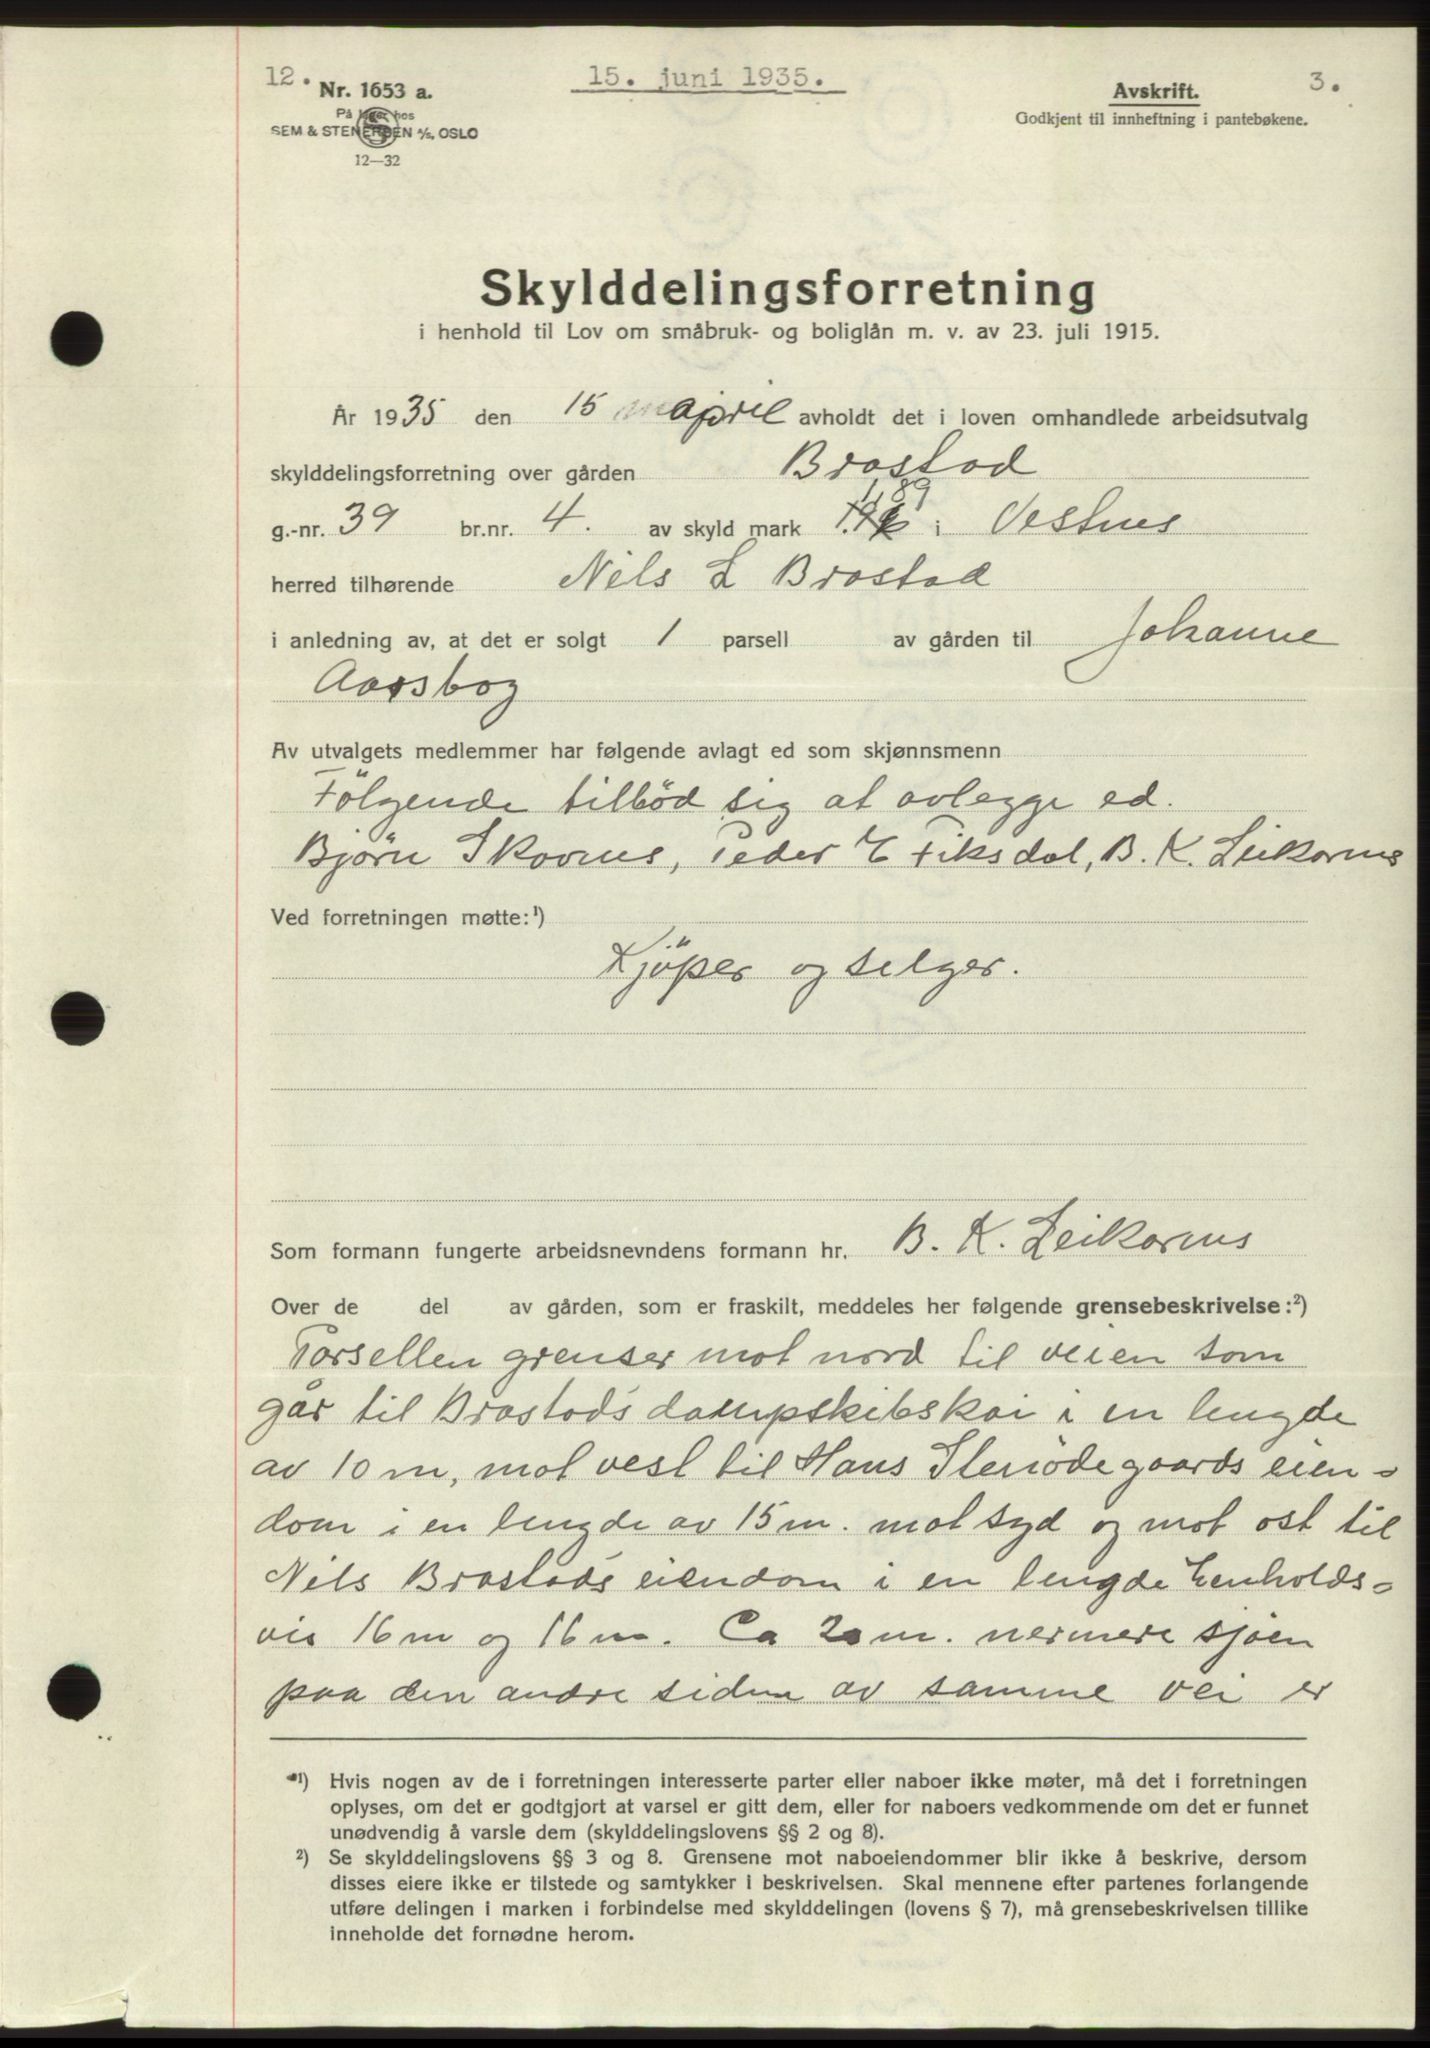 12.
15. juni 1935.
3.
Nr. 1653 a.
På lager hos
SEM & STENERSEN A/S, OSLO
12—32
Avskrift.
Godkjent til innheftning i pantebøkene.
Skylddelingsforretning
i henhold til Lov om småbruk- og boliglån m. v. av 23. juli 1915.
År 1935 den 15 april avholdt det i loven omhandlede arbeidsutvalg
skylddelingsforretning over gården Brastad
g.-nr. 39 br.nr. 4. av skyld mark 1,89 i Vestnes
herred tilhørende Nils L Brastad
i anledning av, at det er solgt 1 parsell av gården til Johanne
Aarsbog
Av utvalgets medlemmer har følgende avlagt ed som skjønnsmenn
Følgende tilbød sig at avlegge ed.
Bjørn Skovnes, Peder E Fiksdal, B. K. Leikarnes
Ved forretningen møtte:¹)
Kjöper og selger.
Som formann fungerte arbeidsnevndens formann hr. B. K. Leikarnes
Over de del av gården, som er fraskilt, meddeles her følgende grensebeskrivelse:²)
Parsellen grenser mot nord til veien som
går til Brastads dampskibskai i en lengde
av 10 m, mot vest til Hans Stenødegaards eien-
dom i en lengde av 15 m. mot syd og mot ost til
Nils Brastads eiendom i en lengde henholds-
vis 16 m og 16 m. Ca 20 m. nermere sjøen
paa den andre siden av samme vei er
¹) Hvis nogen av de i forretningen interesserte parter eller naboer ikke møter, må det i forretningen
oplyses, om det er godtgjort at varsel er gitt dem, eller for naboers vedkommende om det er funnet
unødvendig å varsle dem (skylddelingslovens §§ 2 og 8).
²) Se skylddelingslovens §§ 3 og 8. Grensene mot naboeiendommer blir ikke å beskrive, dersom
disses eiere ikke er tilstede og samtykker i beskrivelsen. Skal mennene efter partenes forlangende
utføre delingen i marken i forbindelse med skylddelingen (lovens § 7), må grensebeskrivelsen tillike
inneholde det fornødne herom.